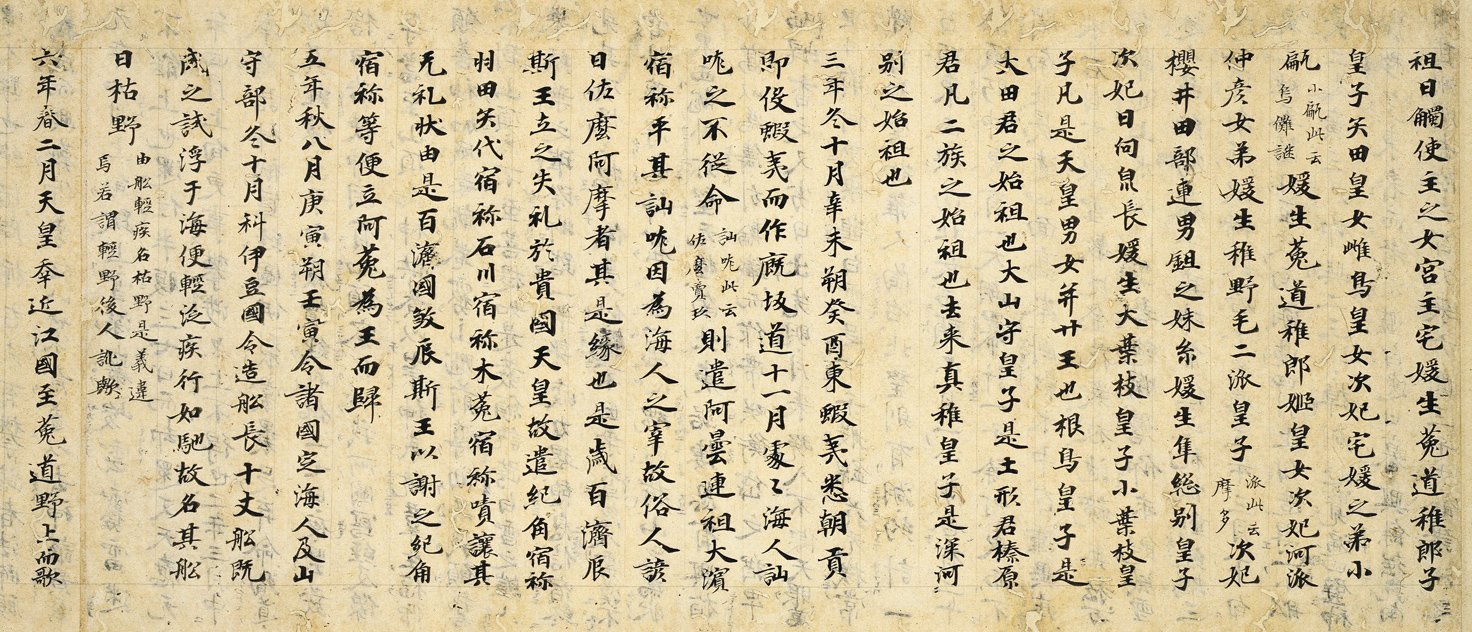 祖日觸使主之女宮主宅媛生菟道稚郎子
皇子矢田皇女雌鳥皇女次妃宅媛之弟小
甂小甂此云烏儺謎媛生菟道稚郎姬皇女次妃河派
仲彦女弟媛生稚野毛二派皇子派此云摩多次妃
櫻井田部連男鉏之妹糸媛生隼総别皇子
次妃日向泉長媛生大葉枝皇子小葉枝皇
子凡是天皇男女并廿王也根鳥皇子是
大田君之始祖也大山守皇子是土形君榛原
君凡二族之始祖也去来真稚皇子是深河
别之始祖也
三年冬十月辛未朔癸酉東蝦夷悉朝貢
即伇蝦夷而作厩坂道十一月處々海人訕
哤之不從命訕哤此云佐麼賣玖則遣阿曇連祖大濱
宿祢平其訕哤因為海人之宰故俗人諺
曰佐麼阿摩者其是緣也是歳百濟辰
斯王立之失礼於貴國天皇故遣紀角宿祢
羽田矢代宿祢石川宿祢木菟宿祢嘖讓其
无礼状由是百濟國敘辰斯王以謝之紀角
宿祢等便立阿菟為王而歸
五年秋八月庚寅朔壬寅令諸國定海人及山
守部冬十月科伊豆國令造舩長十丈舩既
成之試浮于海便輕泛疾行如馳故名其舩
曰枯野由舩輕疾名枯野是義違焉若謂輕野後人訛歟
六年春二月天皇幸近江國至菟道野上而歌